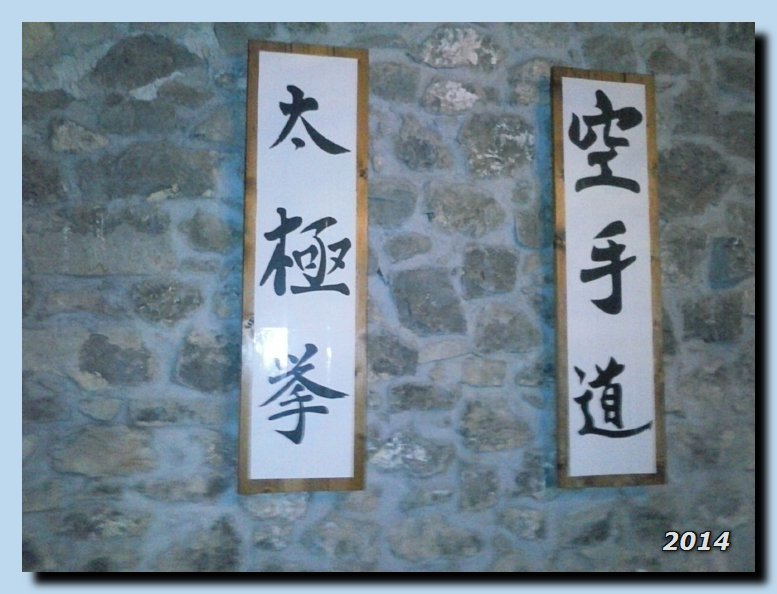 太極拳
空手道
2014